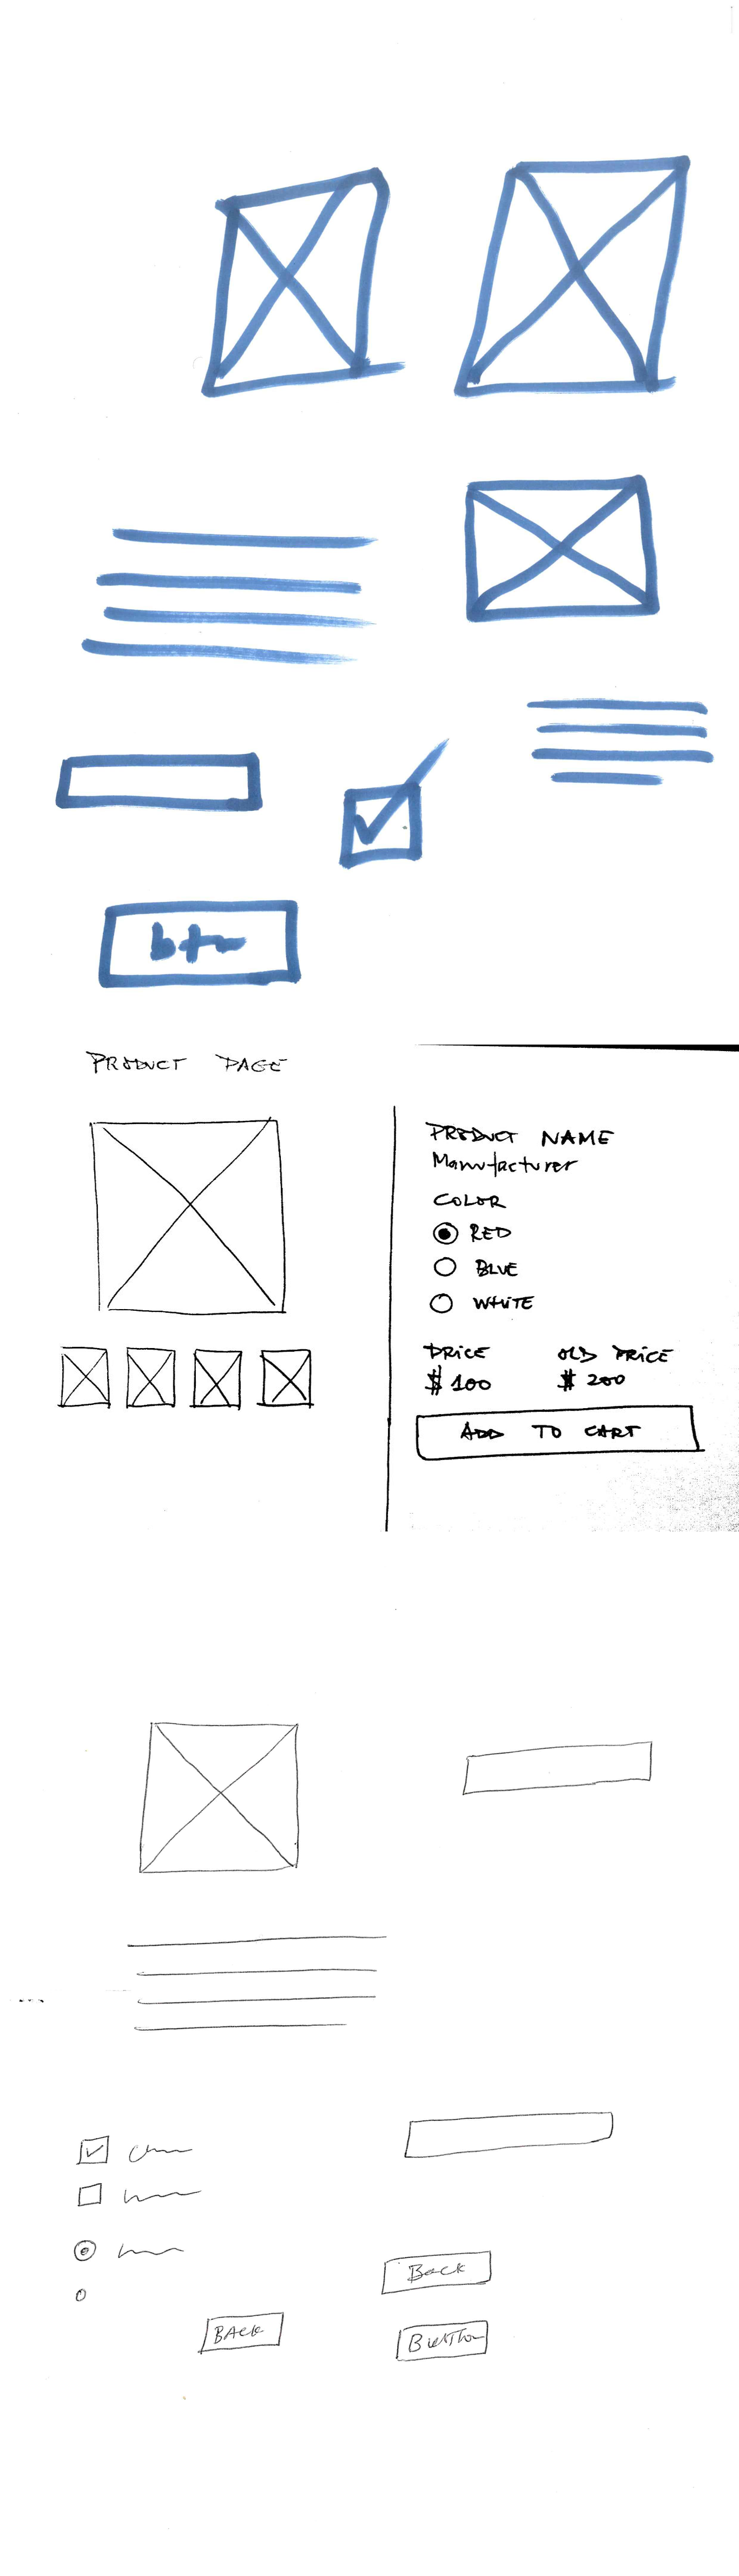 btn
PRODUCT PAGE
PRODUCT NAME
Manufacturer
COLOR
RED
BLUE
WHITE
PRICE OLD PRICE
$ 100 $ 200
ADD TO CART
Back
BACK
Button